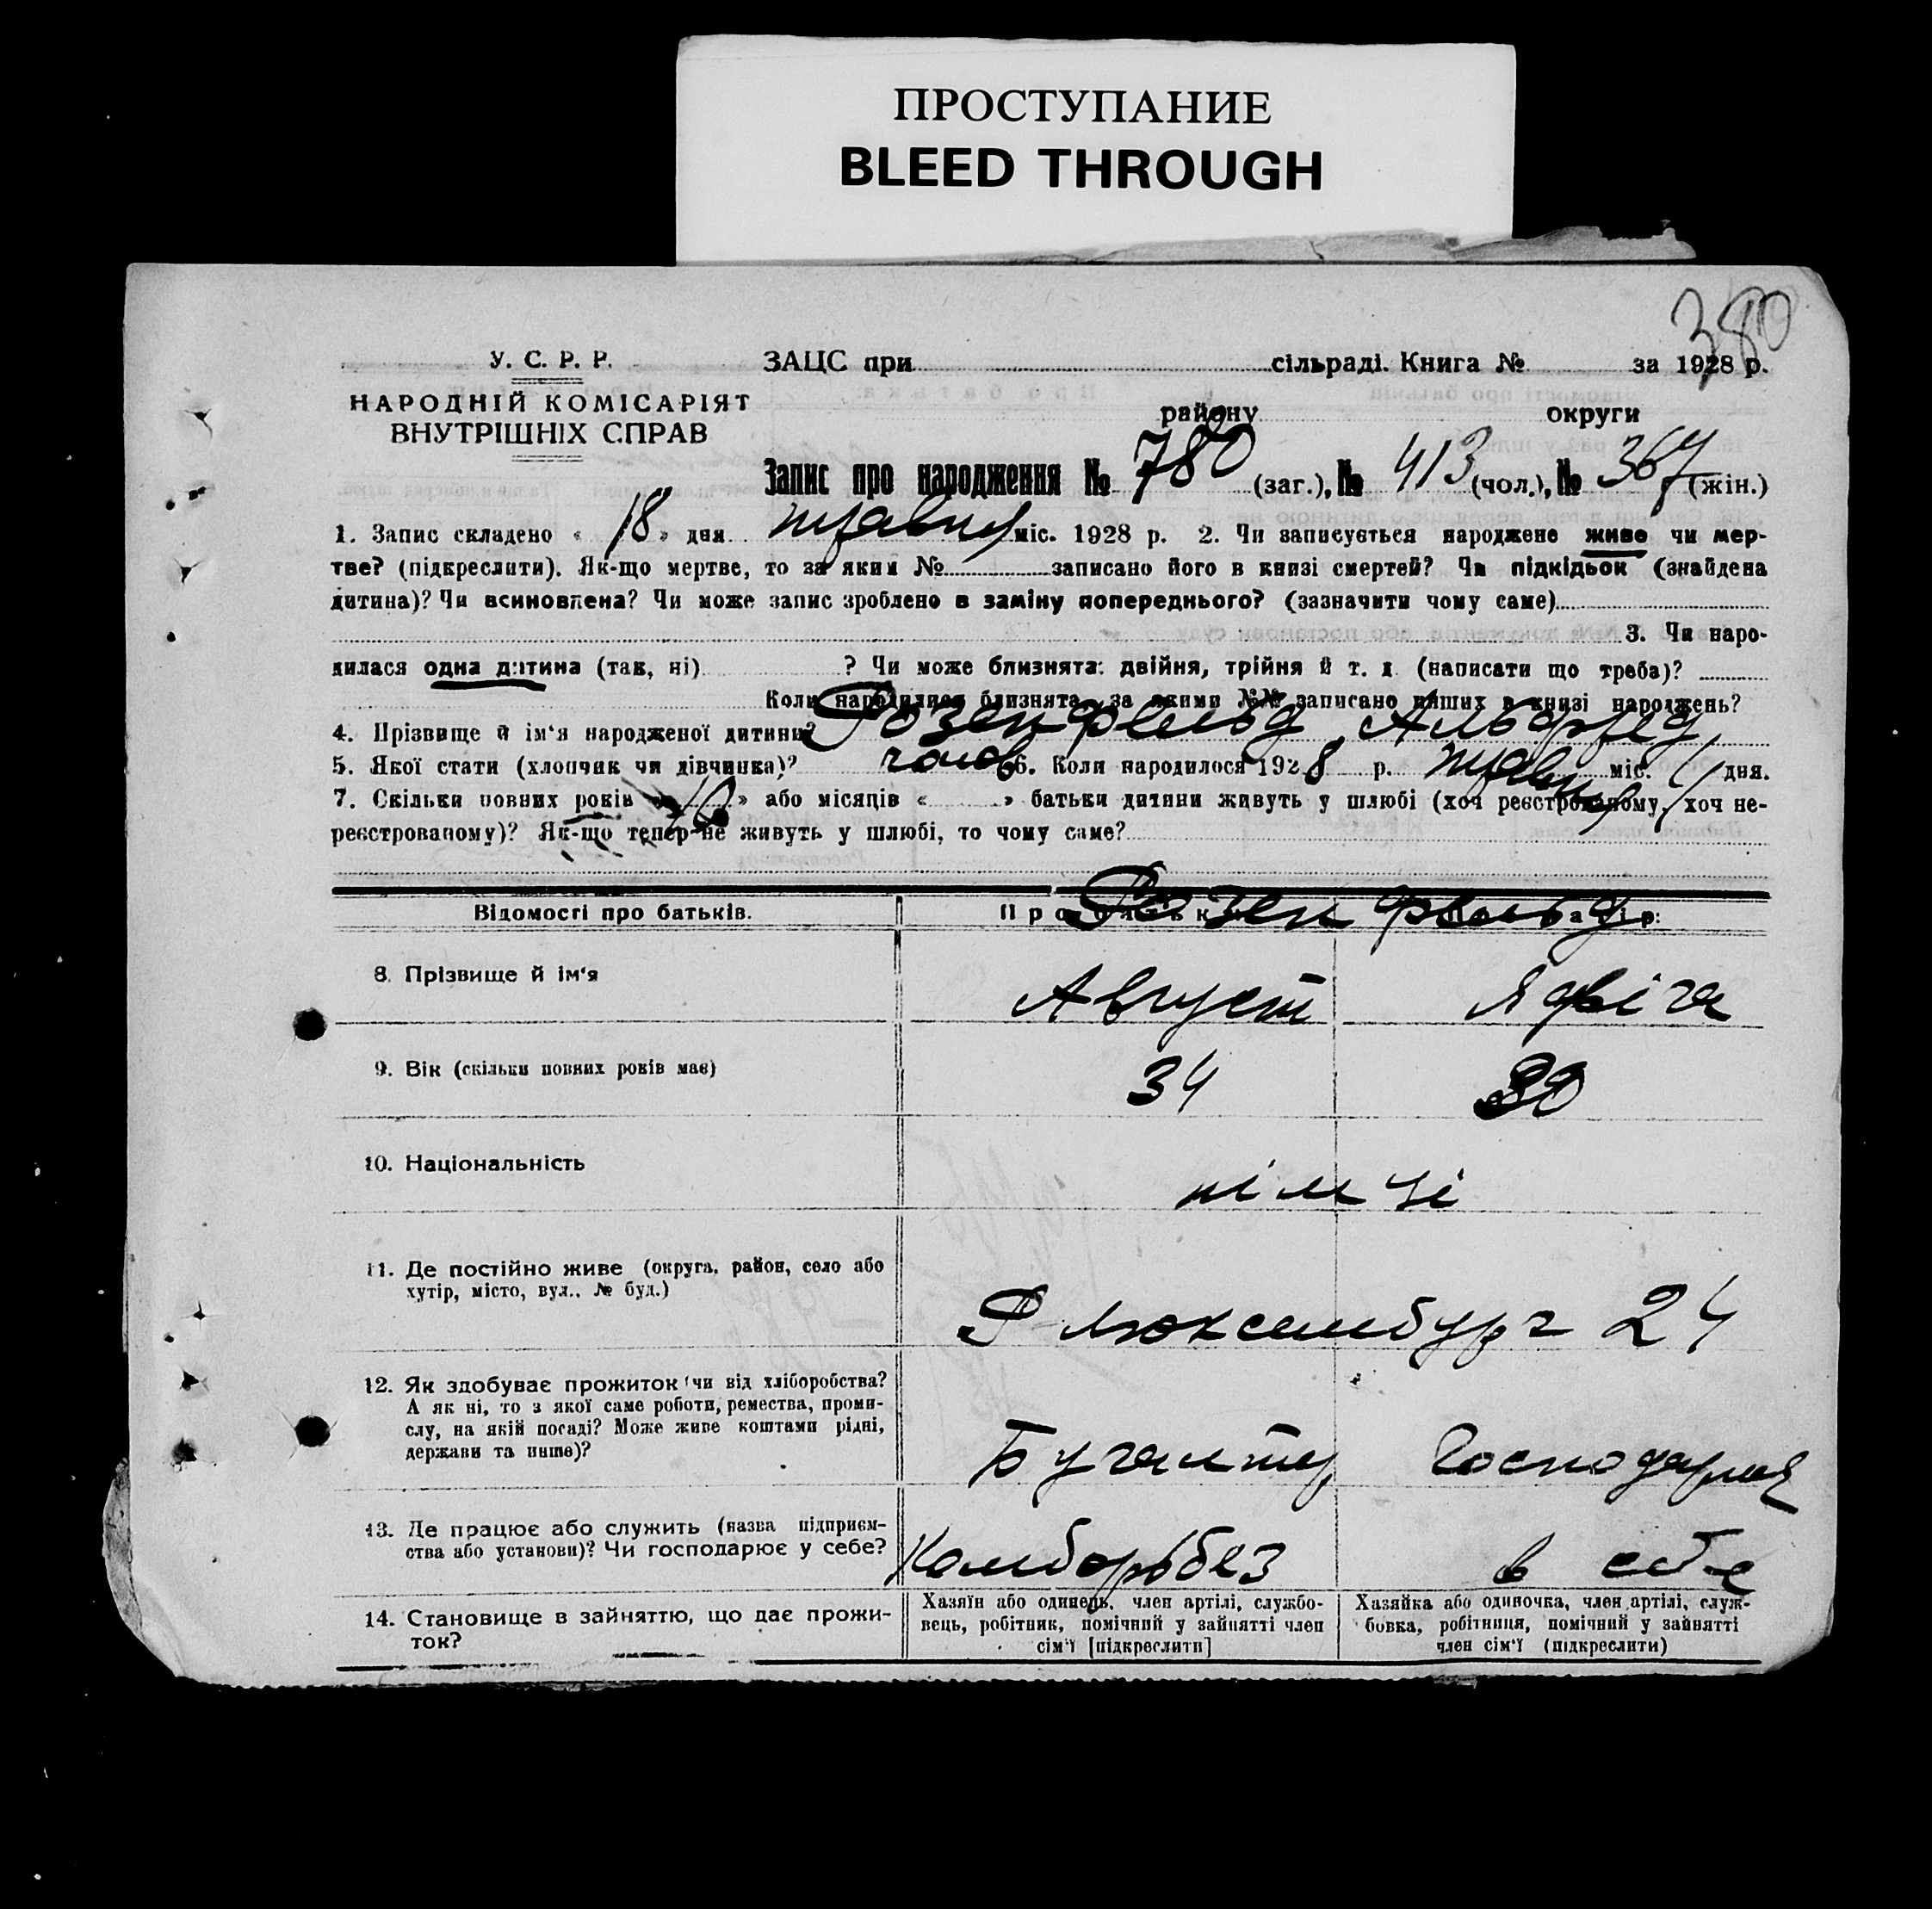 ПРОСТУПАНИЕ
BLEED THROUGH
380
У. С. Р. Р.
НАРОДНІЙ КОМІСАРІЯТ
ВНУТРІШНІХ СПРАВ
ЗАЦС при сільраді. Книга № за 1928 р.
району округи
Запис про народження № 780 (заг.), № 413 (чол.), № 367 (жін.)
1. Запис складено « 18 » дня травня міс. 1928 р. 2. Чи записується народжене живе чи мер-
тве? (підкреслити). Як-що мертве, то за яким № записано його в книзі смертей? Чи підкідьок (знайдена
дитина)? Чи всиновлена? Чи може запис зроблено в заміну попереднього? (зазначити чому саме)
3. Чи наро-
дилася одна дитина (так, ні) ? Чи може близнята: двійня, трійня й т. д. (написати що треба)?
Коли народилися близнята, за якими №№ записано інших в книзі народжень?
4. Прізвище й ім'я народженої дитини? Розенфельд Альфред
5. Якої стати (хлопчик чи дівчинка)? чолов 6. Коли народилося 1928 р. травня міс. дня.
7. Скільки повних років « 10 » або місяців « » батьки дитини живуть у шлюбі (хоч реєстрованому, хоч не-
реєстрованому)? Як-що тепер не живуть у шлюбі, то чому саме?
Відомості про батьків.
Розенфельд
8. Прізвище й ім'я Август Ядвіга
9. Вік (скільки повних років має) 34 30
10. Національність німці
11. Де постійно живе (округа, район, село або
хутір, місто, вул., № буд.)
Р Люксембург 24
12. Як здобуває прожиток чи від хліборобства?
А як ні, то з якої саме роботи, ремества, проми-
слу, на якій посаді? Може живе коштами рідні,
держави та инше)?
Бугалтер Господарня
13. Де працює або служить (назва підприєм-
ства або установи)? Чи господарює у себе?
Камборбез в себе
14. Становище в зайняттю, що дає прожи-
ток?
Хазяїн або одинець, член артілі, службо-
вець, робітник, помічний у зайнятті член
сім'ї [підкреслити]
Хазяйка або одиночка, член артілі, служ-
бовка, робітниця, помічний у зайнятті
член сім'ї (підкреслити)